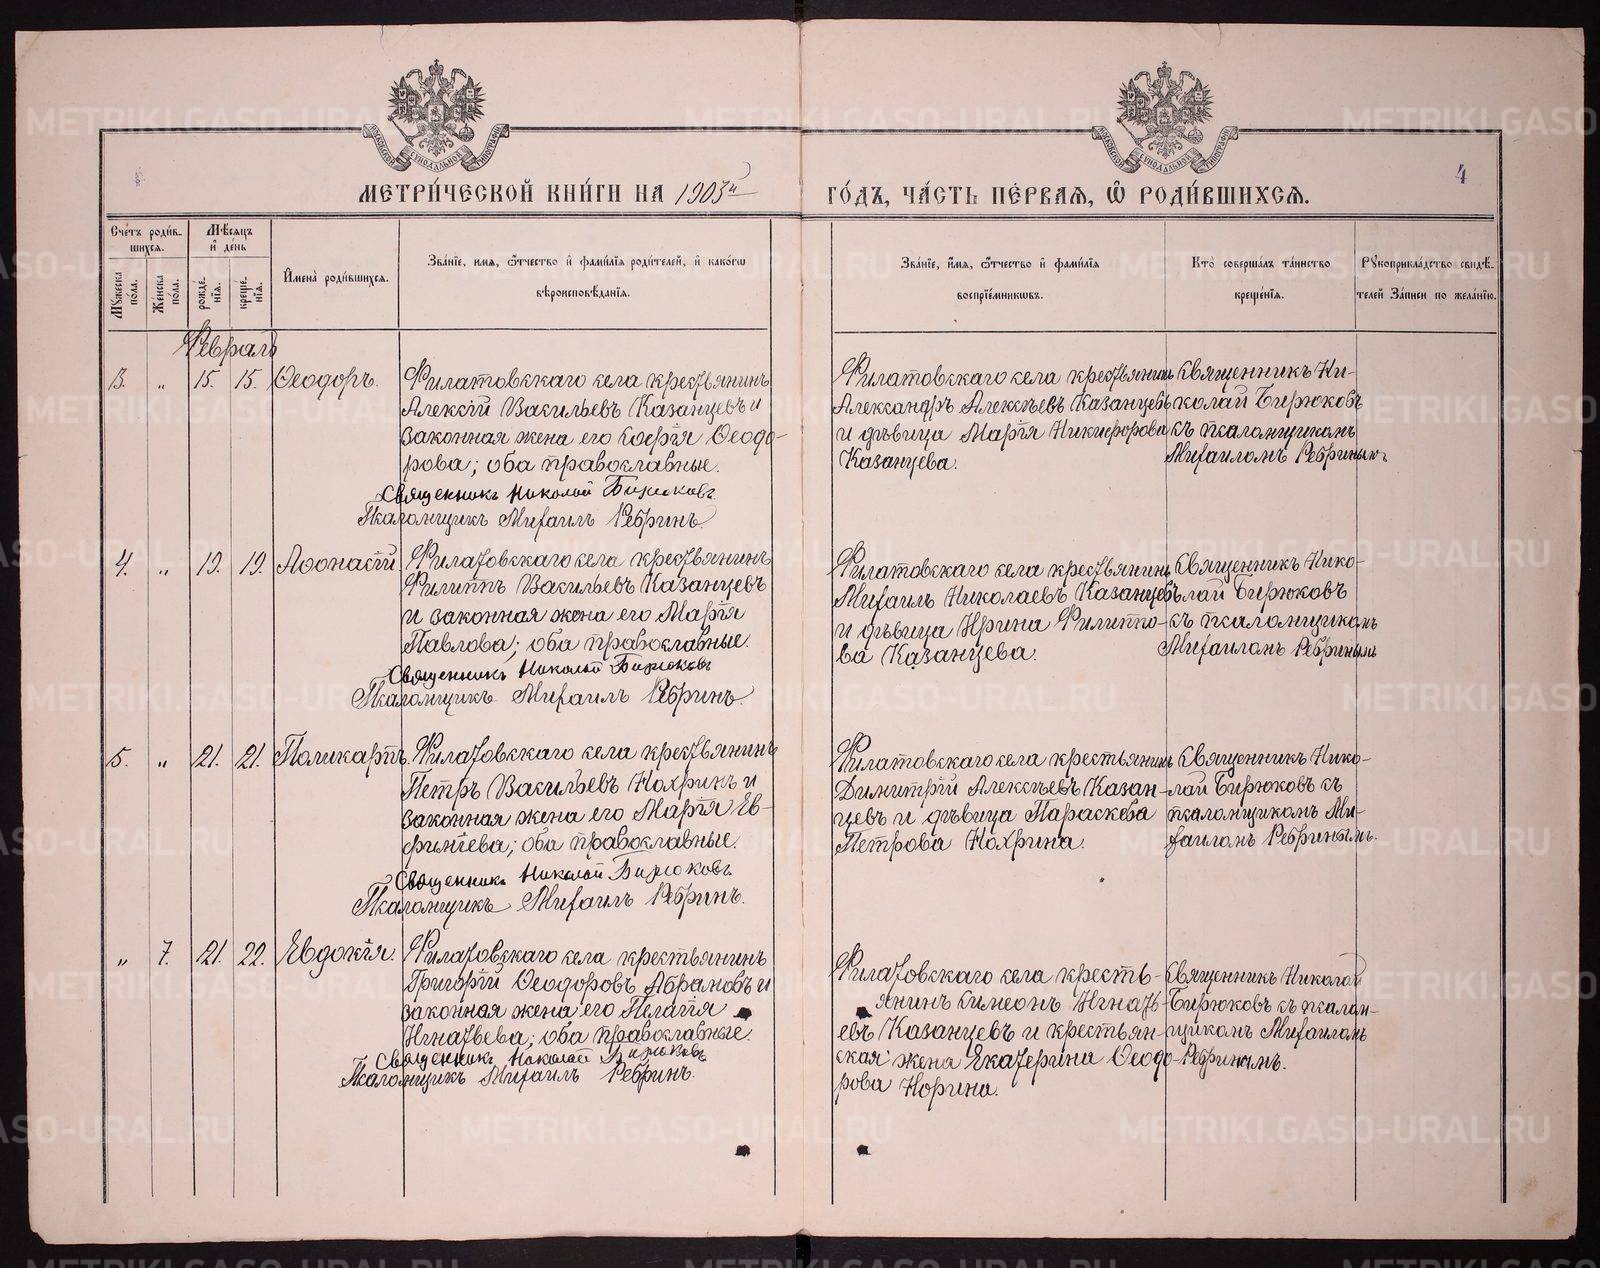 МОСКОВСКОЙ СѴНОДАЛЬНОЙ ТИПОГРАФІИ
МОСКОВСКОЙ СѴНОДАЛЬНОЙ ТИПОГРАФІИ
4
МЕТРИ́ЧЕСКОЙ КНИ́ГИ НА 1903й ГО́ДЪ, ЧА́СТЬ ПЕ́РВАѦ, Ѡ РОДИ́ВШИХСѦ.
Сче́тъ роди́в-
шихся.
Мѣ́сяцъ
и҆ де́нь
Мꙋ́жеска по́ла.
Же́нска по́ла.
рожде́-
нїѧ.
креще́-
нїѧ.
И҆мена̀ роди́вшихся.
Зва́нїе, имѧ, ѻ҆́тчество и҆ фами́лїѧ роди́телей, и҆ како́гѡ
вѣроисповѣ́данїѧ.
Зва́нїе, и҆́мѧ, ѻ҆́тчество и҆ фами́лїѧ
воспрїе́мникωвъ.
Кто̀ соверша́лъ та́инство
креще́нїѧ.
Рꙋкоприкла́дство свидѣ́-
телей За́писи по жела́нїю.
Февраль
3. „ 15. 15. Ѳеодоръ.
Филатовскаго села крестьянинъ
Алексій Васильевъ Казанцевъ и
законная жена его Софія Ѳеодо-
рова; оба православные.
Священникъ Николай Бирюковъ
Псаломщикъ Михаилъ Ребринъ.
Филатовскаго села крестьянинъ
Александръ Алексѣевъ Казанцевъ
и дѣвица Марія Никифорова
Казанцева.
Священникъ Ни-
колай Бирюковъ
съ псаломщикомъ
Михаиломъ Ребринымъ.
4. „ 19. 19. Аѳонасій
Филатовскаго села крестьянинъ
Филиппъ Васильевъ Казанцевъ
и законная жена его Марія
Павлова; оба православные.
Священникъ Николай Бирюковъ
Псаломщикъ Михаилъ Ребринъ.
Филатовскаго села крестьянинъ
Михаилъ Николаевъ Казанцевъ
и дѣвица Ирина Филиппо-
ва Казанцева.
Священникъ Нико-
лай Бирюковъ
съ псаломщикомъ
Михаиломъ Ребринымъ
5. „ 21. 21. Поликарпъ.
Филатовскаго села крестьянинъ
Петръ Васильевъ Кохринъ и
законная жена его Марія Ев-
фиміева; оба православные.
Священникъ Николай Бирюковъ.
Псаломщикъ Михаилъ Ребринъ.
Филатовскаго села крестьянинъ
Димитрій Алексѣевъ Казан-
цевъ и дѣвица Параскева
Петрова Кохрина.
Священникъ Нико-
лай Бирюковъ съ
псаломщикомъ Ми-
хаиломъ Ребринымъ.
„ 7. 21. 22. Евдокія.
Филатовскаго села крестьянинъ
Григорій Ѳеодоровъ Абрамовъ и
законная жена его Пелагія
Игнатьева; оба православные.
Священникъ Николай Бирюковъ
Псаломщикъ Михаилъ Ребринъ.
Филатовскаго села кресть-
янинъ Симеонъ Игнать-
евъ Казанцевъ и крестьян-
ская жена Екатерина Ѳеодо-
рова Норина.
Священникъ Николай
Бирюковъ съ псалом-
щикомъ Михаиломъ
Ребринымъ.
METRIKI.GASO-URAL.RU